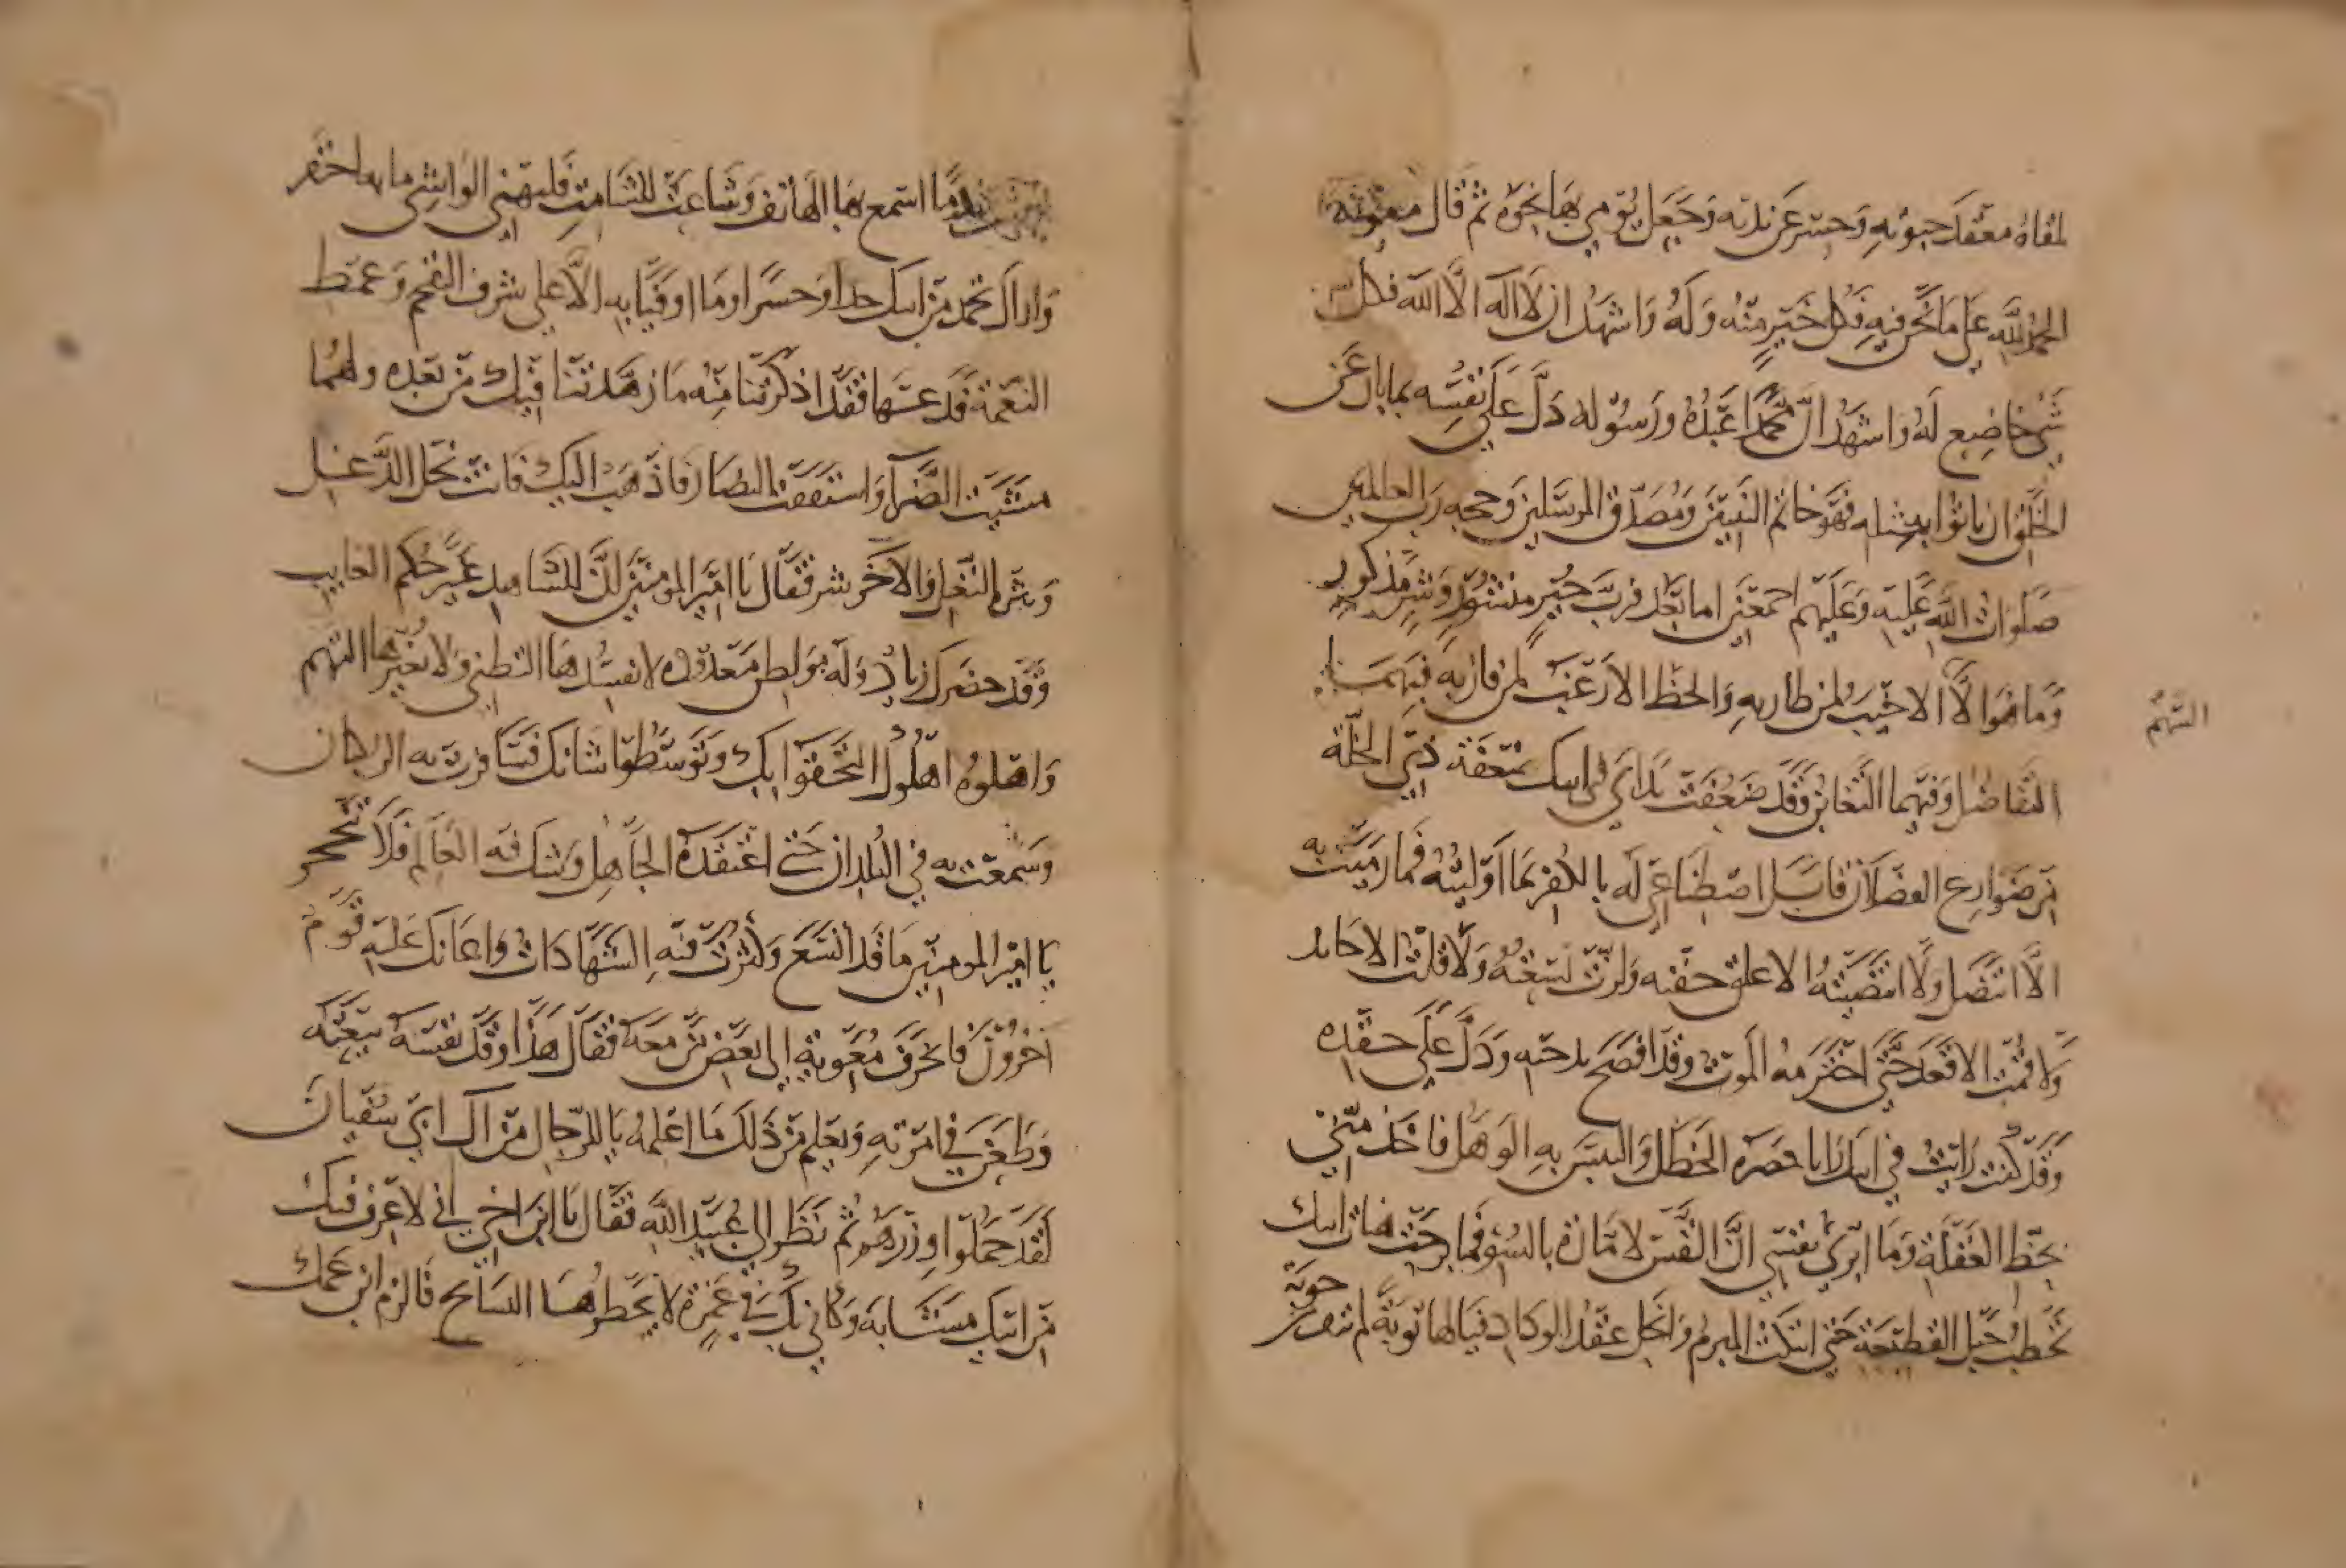 لقاه معقد حبوته وحسر عن يديه وجعل يومي بها نحوه ثم قال معوية
الحمد لله على ما نحن فيه فكل خير منه وله واشهد ان لا اله الا الله فكل
شي خاضع له واشهد ان محمدا عبده ورسوله دل على نفسه بما بان عن
الخلق ان ياتوا بمثله فهو خاتم النبيين ومصدق المرسلين وحجة رب العالمين
صلوات الله عليه وعليهم اجمعين اما بعد فرب خير منشور وشر مذكور
وما هو الا الاخيب لمن طار به والحظ الارغب لمن فاز به فبهما
التفاضل وفيهما التغابن وقد صفقت يداي في ابيك صفقة ذي الخلة
السهم
من ضوارع الفصلان قابل اصطناعي له بالكفر بما اوليته فما رميت به
الا انتصل ولا انتضيته الا غلق جفنه ولزت لسعته ولا قلت الا عاند
ولا قمت الا قعد حتى اخترمه الموت وقد افصح بدخته ودل على حقده
وقد كنت رايت في ابيك رايا حضره الخطل والتبس به الوهل فاخذ مني
بحظ الغفلة وما ابري نفسي ان النفس لامارة بالسوء فما برحت هنات ابيك
تحطب في حبل القطيعة حتى انتكث المبرم وانحل عقد الوداد فيا لها توبة لم
حوبة
استمع بها الهاتف وشاعت للشامت فليهن الواشي ما به احتقر
واراك تحمد من ابيك جدا وجسرا وما اوفيا به الا على شرف التقحم وغمط
النعمة فدعهما فقد اذكرتنا منه ما زهدتنا فيك من بعده ولهما
مشيت الضراء واستففت النضار فاذهب اليك فانت نجل الدغل
وشر النغل والاخر شر فقال يا امير المومنين ان للشاهد غير حكم الغايب
وقد حضرك زياد وله مواطن معدودة لا يفسدها التظني ولا يغيرها التهم
واهلوه اهلوك التحفوا بك وتوسطوا شانك فسافرت به الركبان
وسمعت به في البلدان حتى اعتقده الجاهل وشك فيه العالم فلا تتحجر
يا امير المومنين ما قد اتسع وكثرت فيه الشهادات واعانك عليه قوم
اخرون فانحرف معوية الى بعض من معه فقال هذا وقد نفسه ببيعته
وطعن في امرته ويعلم من ذلك ما اعلمه يا للرجال من ال ابي سفيان
لقد حملوا وزرهم ثم نظر الى عبيد الله فقال يا ابن اخي اني لاعرف فيك
من ابيك مشابه وكاني بك في غمرة لا يخطوها السابح فالزم ابن عمك